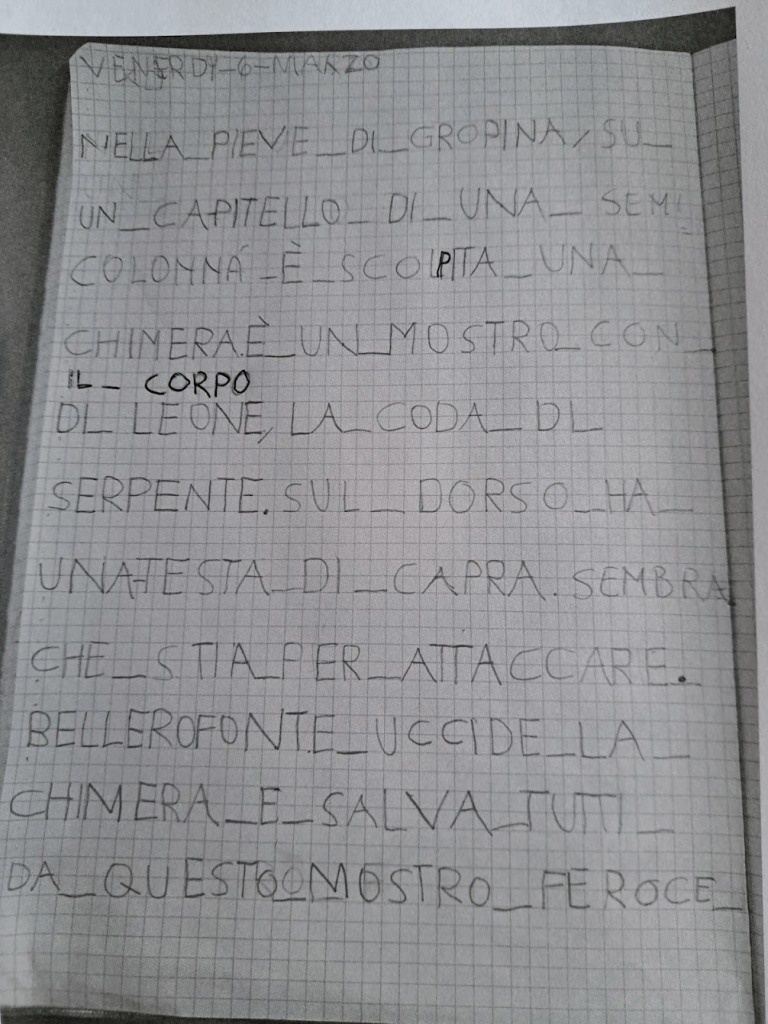 VENERDI-6-MARZO
NELLA_PIEVE_DI_GROPINA, SU_
UN_CAPITELLO_DI_UNA_SEMI
COLONNA_È_SCOLPITA_UNA_
CHIMERA.È_UN_MOSTRO_CON_
IL_CORPO
DI_LEONE, LA_CODA_DI
SERPENTE. SUL_DORSO_HA_
UNA-TESTA_DI_CAPRA. SEMBRA
CHE_STIA_PER_ATTACCARE.
BELLEROFONTE_UCCIDE_LA_
CHIMERA_E_SALVA_TUTTI_
DA_QUESTO_MOSTRO_FEROCE_